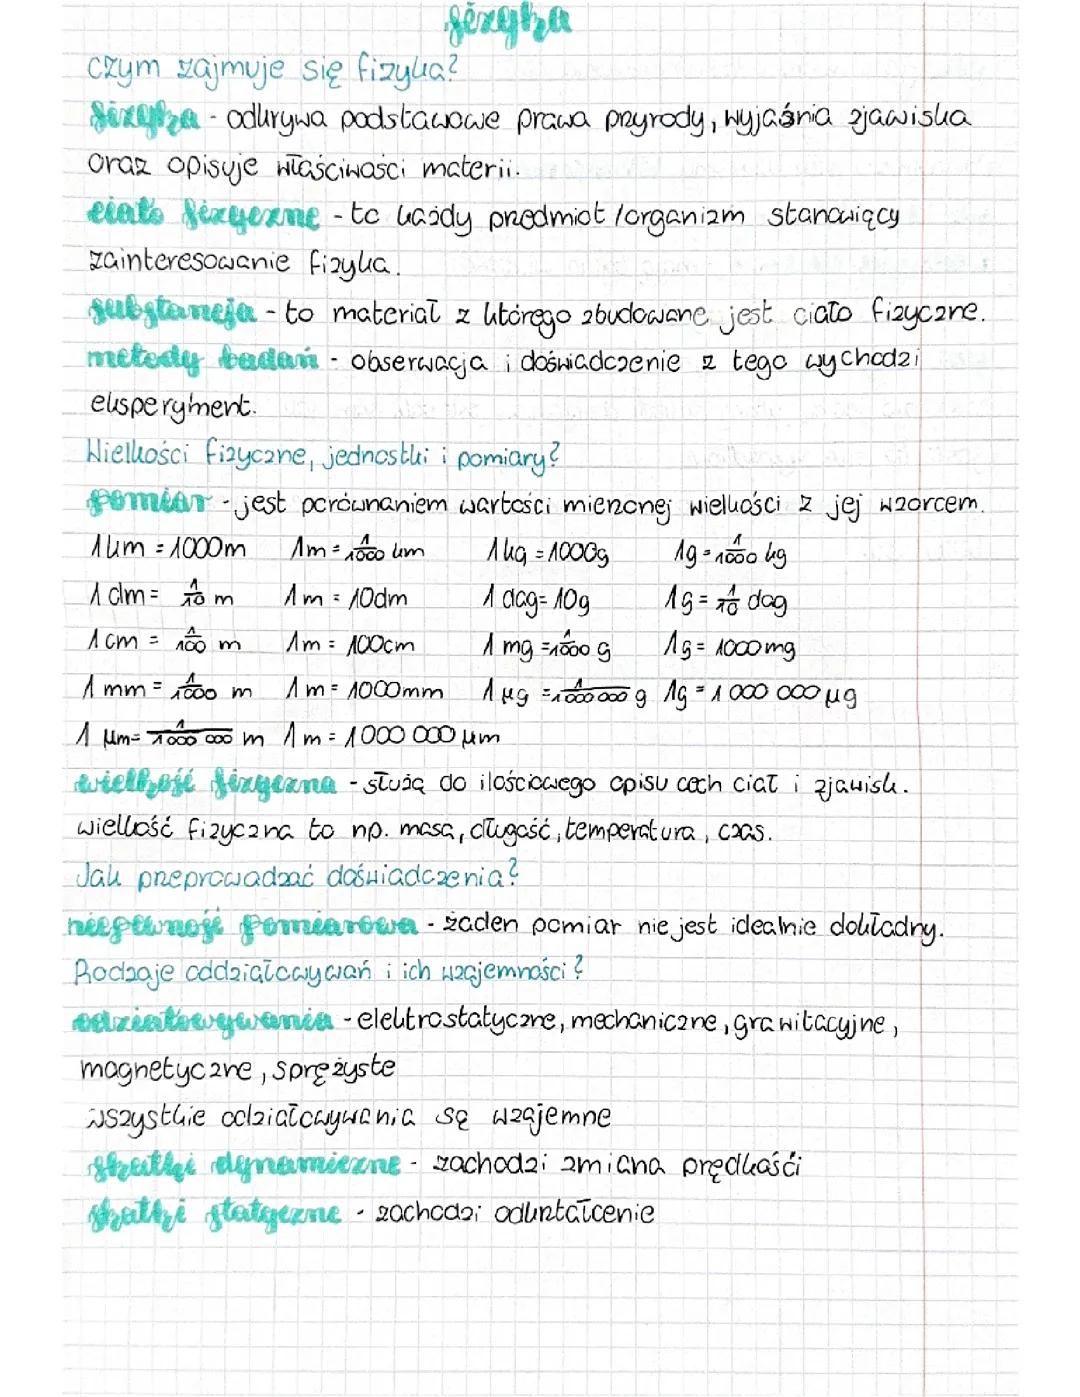 fizyka
Czym zajmuje się fizyka?
fizyka - odkrywa podstawowe prawa przyrody, wyjaśnia zjawiska
oraz opisuje właściwości materii.
ciało fizyczne - to każdy przedmiot / organizm stanowiący
zainteresowanie fizyka.
substancja - to materiał z którego zbudowane jest ciało fizyczne.
metody badań - obserwacja i doświadczenie z tego wychodzi
eksperyment.
Wielkości fizyczne, jednostki i pomiary?
pomiar - jest porównaniem wartości mierzonej wielkości z jej wzorcem.
1 km = 1000m 1m = 1/1000 km 1 kg = 1000g 1g = 1/1000 kg
1 dm = 1/10 m 1m = 10dm 1 dag = 10g 1g = 1/10 dag
1 cm = 1/100 m 1m = 100cm 1 mg = 1/1000 g 1g = 1000mg
1 mm = 1/1000 m 1m = 1000mm 1 μg = 1/1000 000 g 1g = 1 000 000 μg
1 μm = 1/1000 000 m 1m = 1000 000 μm
wielkość fizyczna - służą do ilościowego opisu cech ciał i zjawisk.
wielkość fizyczna to np. masa, długość, temperatura, czas.
Jak przeprowadzać doświadczenia?
niepewność pomiarowa - żaden pomiar nie jest idealnie dokładny.
Rodzaje oddziaływań i ich wzajemności?
odziaływania - elektrostatyczne, mechaniczne, grawitacyjne,
magnetyczne, sprężyste
wszystkie odziaływania są wzajemne
skutki dynamiczne - zachodzi zmiana prędkości
skutki statyczne - zachodzi odkształcenie